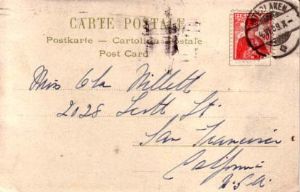 CARTE POSTALE
Postkarte — Cartolina postale
Post Card
Miss Ola Millett
2028 Scott St.
San Francisco
California
U.S.A.